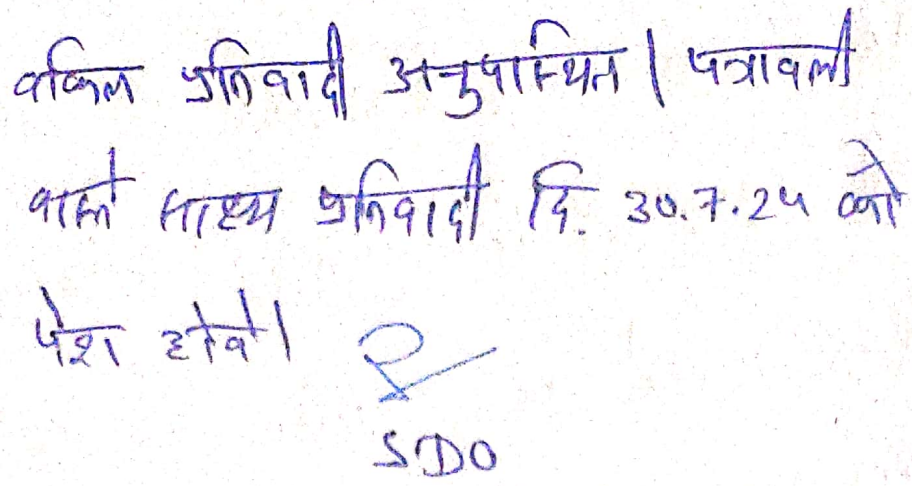 वकिल प्रतिवादी अनुपास्थित। पत्रावली
वास्ते साक्ष्य प्रतिवादी दि. 30.7.24 को
पेश होवे।
SDO